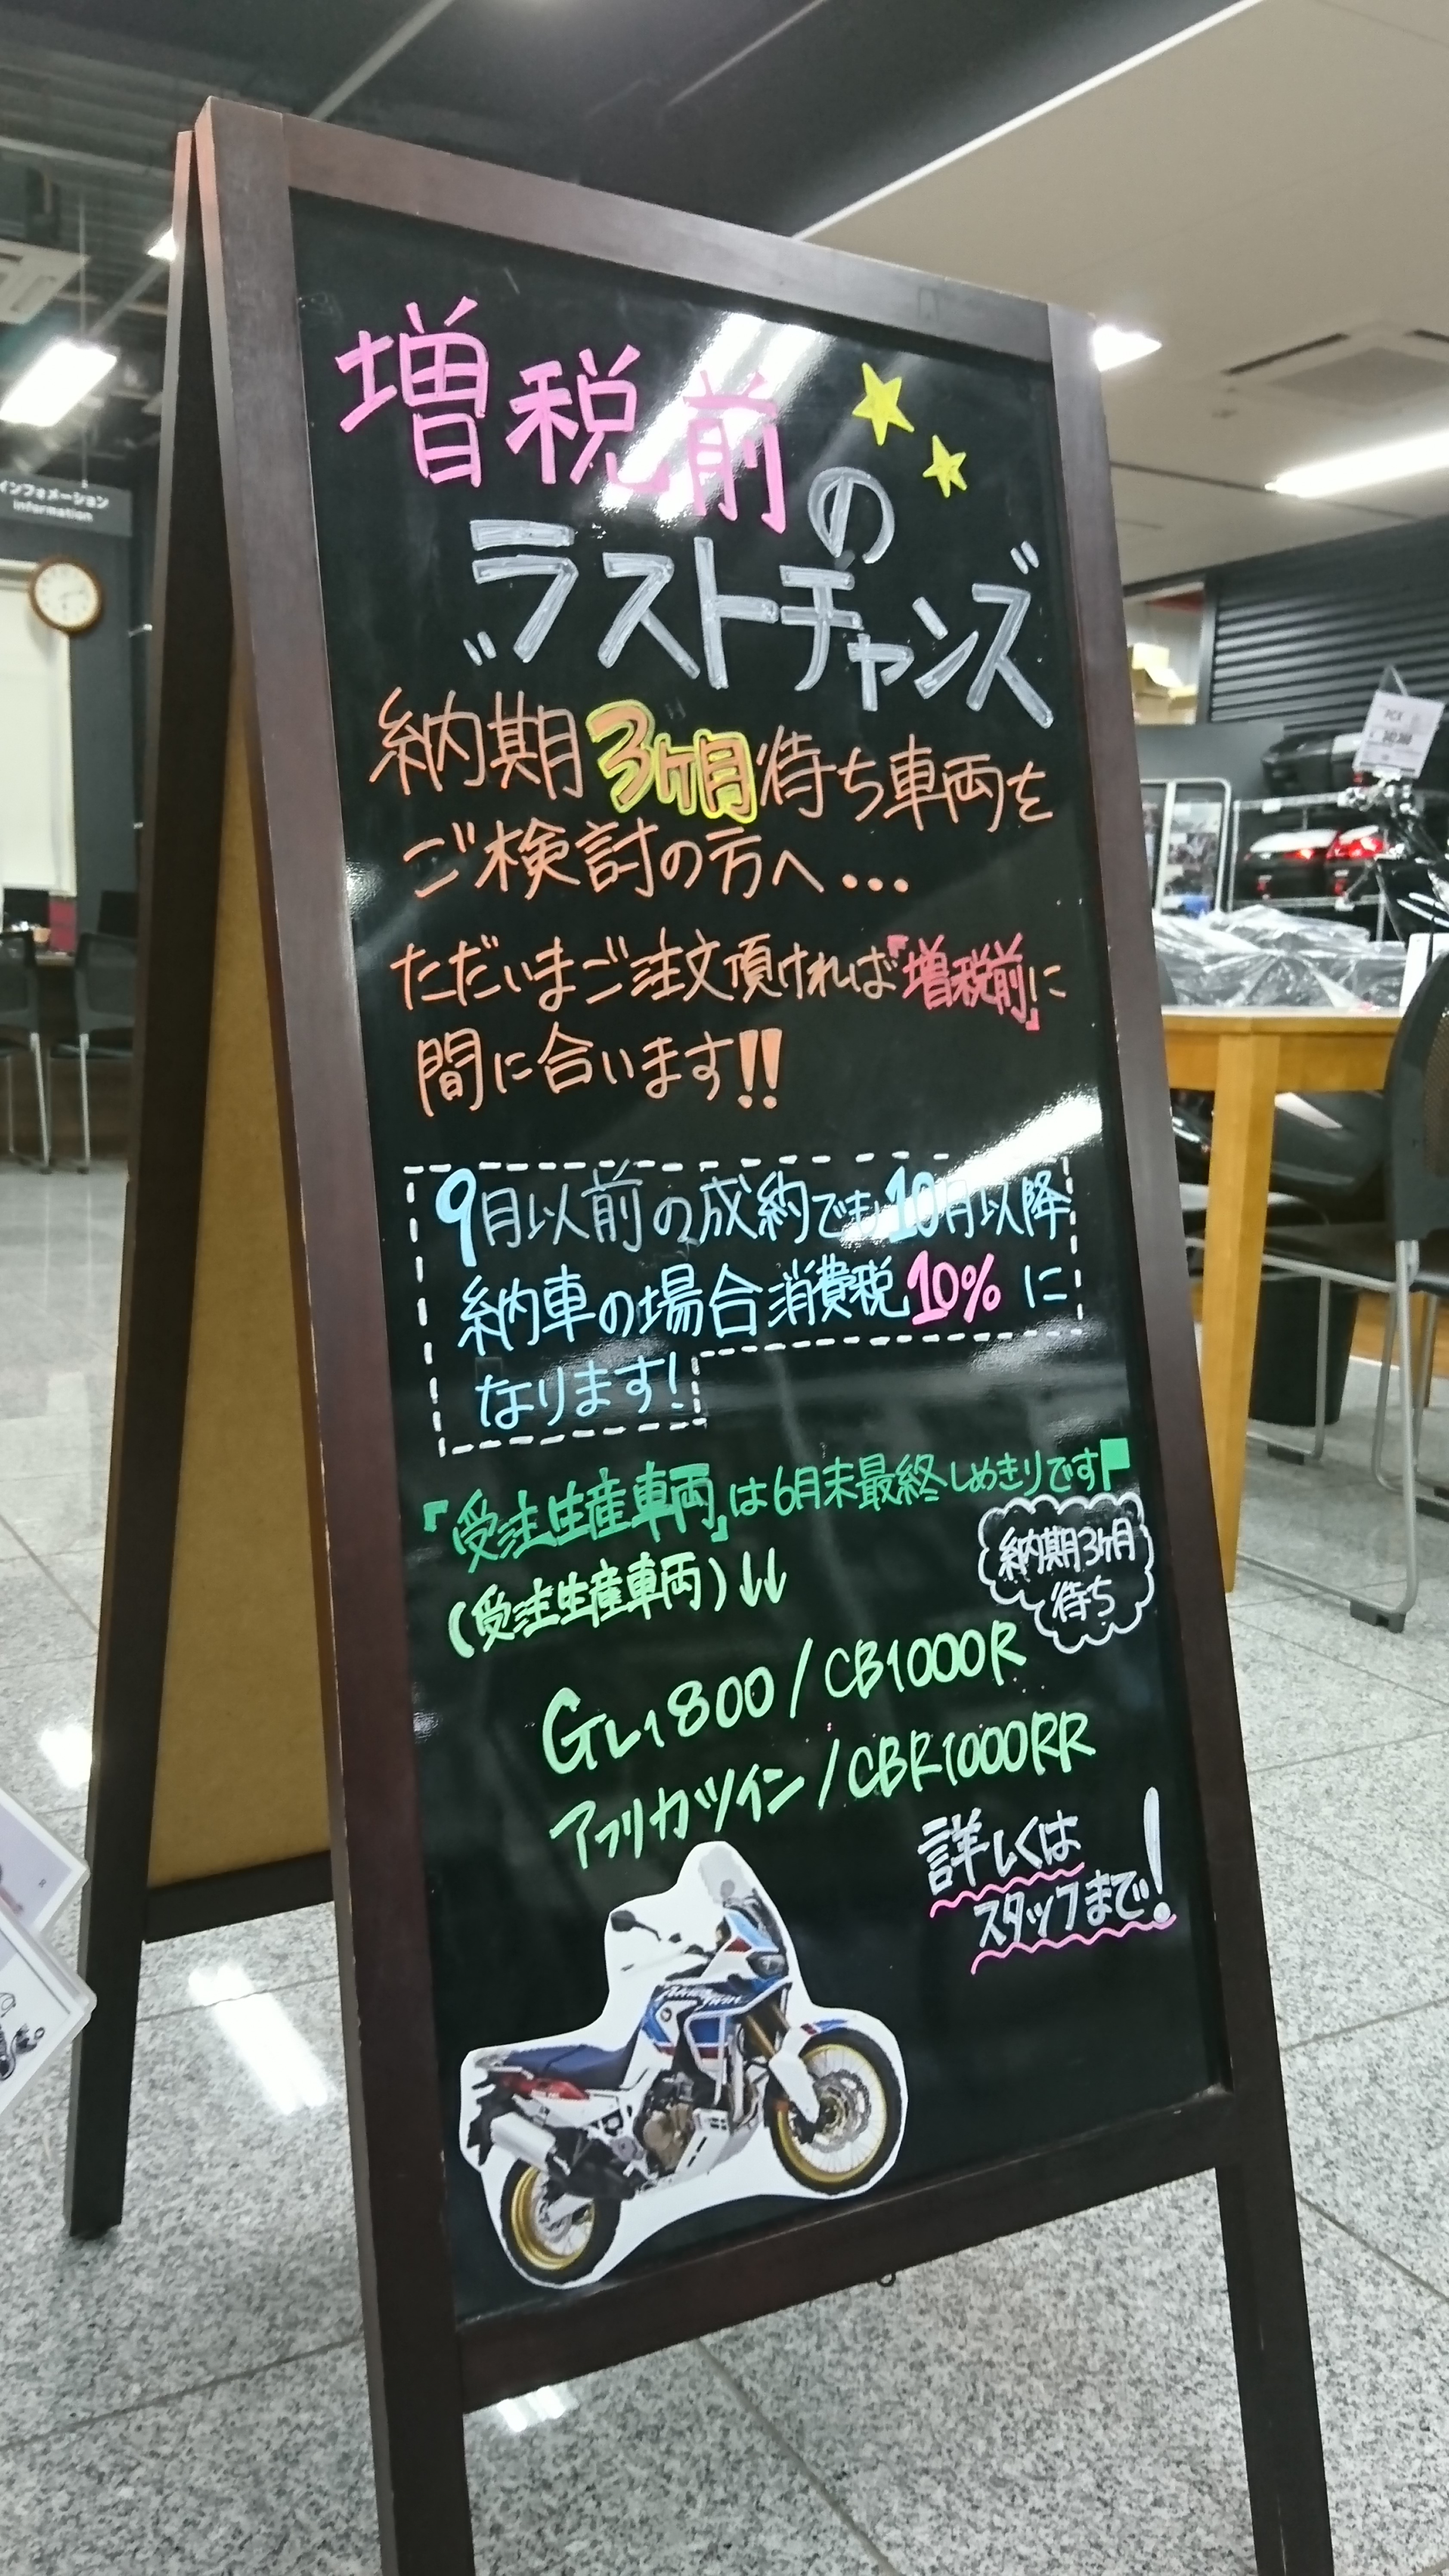 増税前の
〝ラストチャンス〞
納期3ヶ月待ち車両を
ご検討の方へ...
ただいまご注文頂ければ『増税前』に
間に合います!!
9月以前の成約でも10月以降
納車の場合消費税10%に
なります!
『受注生産車両』は6月末最終しめきりです
納期3ヶ月
待ち
(受注生産車両)↓↓
GL1800/CB1000R
アフリカツイン/CBR1000RR
詳しくは
スタッフまで!
インフォメーション
Information
PCX
Africa Twin